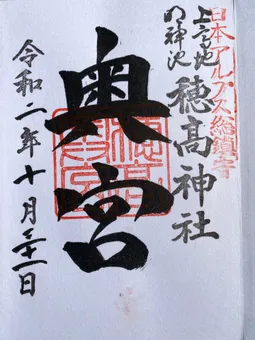 日本アルプス総鎮守
上高地
明神池
穂高神社
奥宮
令和二年十月三十一日